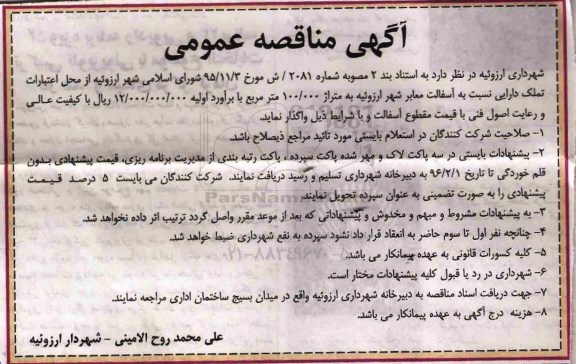 آگهی مناقصه عمومی
شهرداری ارزوئیه در نظر دارد به استناد بند ۲ مصوبه شماره ۲۰۸۱ / ش مورخ ۹۵/۱۱/۳ شورای اسلامی شهر ارزوئیه از محل اعتبارات
تملک دارایی نسبت به آسفالت معابر شهر ارزوئیه به متراژ ۱۰۰/۰۰۰ متر مربع با برآورد اولیه ۱۲/۰۰۰/۰۰۰/۰۰۰ ریال با کیفیت عالی
و رعایت اصول فنی با قیمت مقطوع آسفالت و با شرایط ذیل واگذار نماید.
۱- صلاحیت شرکت کنندگان در استعلام بایستی مورد تائید مراجع ذیصلاح باشد.
۲- پیشنهادات بایستی در سه پاکت لاک و مهر شده پاکت سپرده ، پاکت رتبه بندی از مدیریت برنامه ریزی، قیمت پیشنهادی بدون
قلم خوردگی تا تاریخ ۹۶/۲/۱ به دبیرخانه شهرداری تسلیم و رسید دریافت نمایند. شرکت کنندگان می بایست ۵ درصد قیمت
پیشنهادی را به صورت تضمینی به عنوان سپرده تحویل نمایند.
۳- به پیشنهادات مشروط و مبهم و مخدوش و پیشنهاداتی که بعد از موعد مقرر واصل گردد ترتیب اثر داده نخواهد شد.
۴- چنانچه نفر اول تا سوم حاضر به انعقاد قرار داد نشود سپرده به نفع شهرداری ضبط خواهد شد.
۵- کلیه کسورات قانونی به عهده پیمانکار می باشد.
۶- شهرداری در رد یا قبول کلیه پیشنهادات مختار است.
۷- جهت دریافت اسناد مناقصه به دبیرخانه شهرداری ارزوئیه واقع در میدان بسیج ساختمان اداری مراجعه نمایند.
۸- هزینه درج آگهی به عهده پیمانکار می باشد.
علی محمد روح الامینی - شهردار ارزوئیه